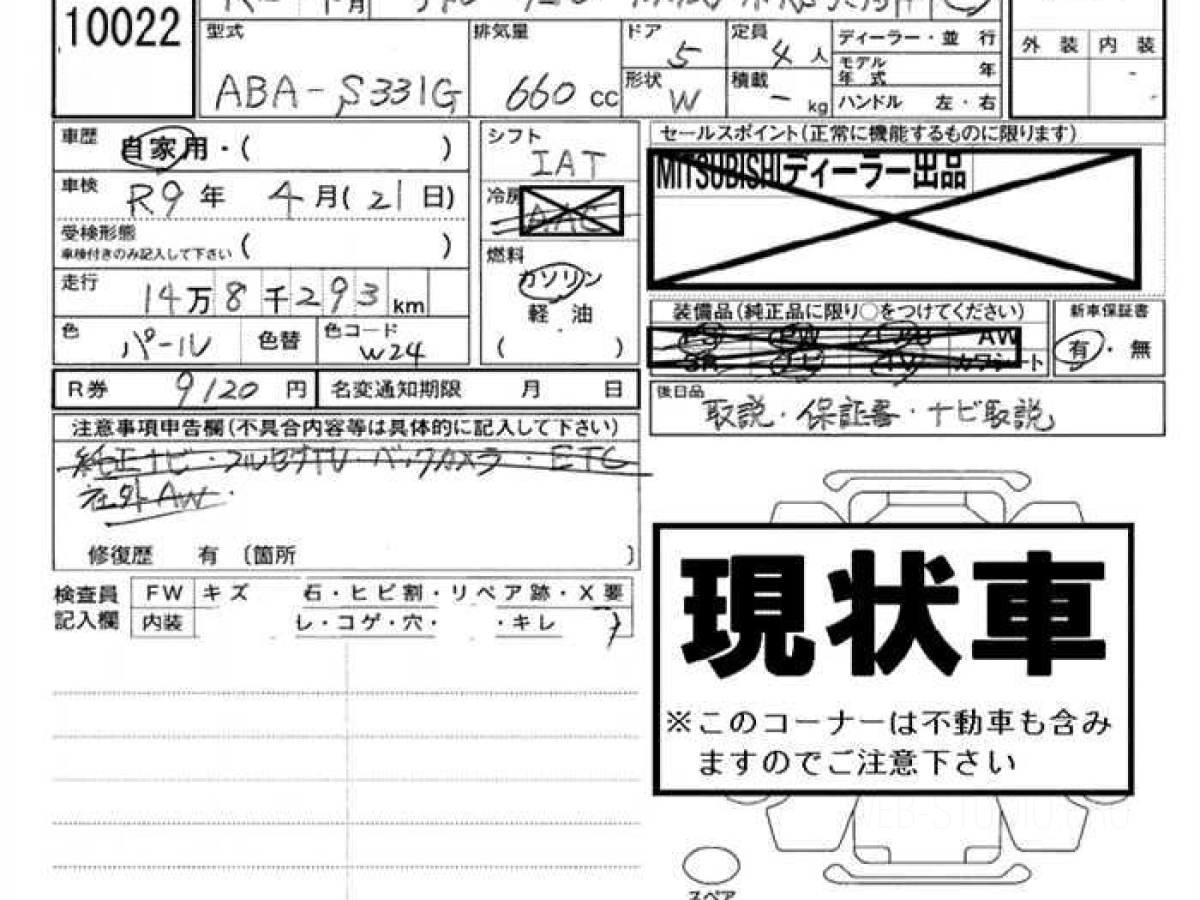 10022
型式 ABA-S331G
排気量 660 cc
ドア 5
定員 4 人
形状 W
積載 - kg
ディーラー・並行
モデル年式 年
ハンドル 左・右
外装 内装
-
車歴 自家用・( )
車検 R9年 4月(21日)
受検形態
車検付きのみ記入して下さい ( )
走行 14万8千293km
色 パール 色替 色コード W24
シフト IAT
冷房 AAC
燃料 ガソリン
軽油
( )
セールスポイント(正常に機能するものに限ります)
MITSUBISHIディーラー出品
装備品(純正品に限り○をつけてください)
PS PW AW
SR TV カワシート
新車保証書
有・無
R券 9120 円 名変通知期限 月 日
後日品
取説・保証書・ナビ取説
注意事項申告欄(不具合内容等は具体的に記入して下さい)
純正ナビ・フルセグTV・バックカメラ・ETC
社外AW・
修復歴 有 〔箇所 〕
検査員記入欄
FW キズ 石・ヒビ割・リペア跡・X要
内装 レ・コゲ・穴・ ・キレ
現状車
※このコーナーは不動車も含み
ますのでご注意下さい
スペア